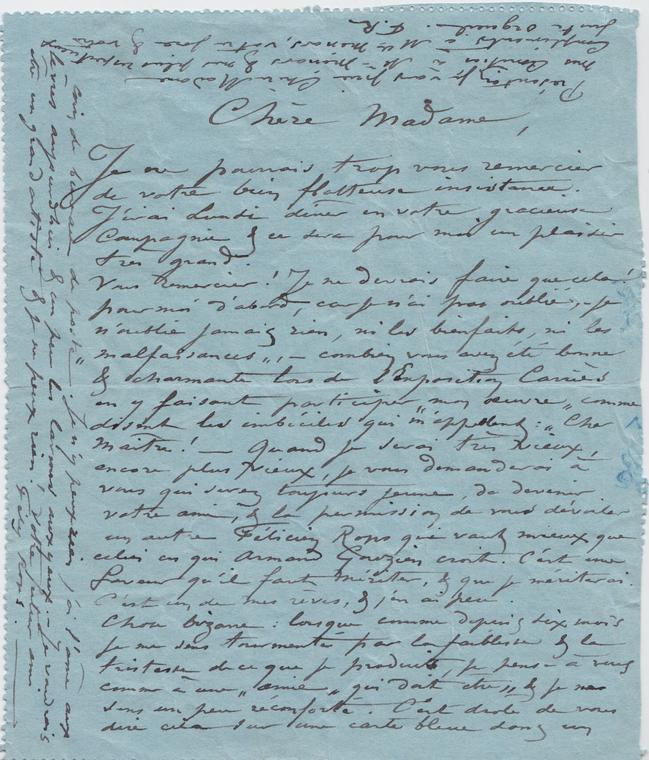 Chère Madame,
Je ne pourrais trop vous remercier
de votre bien flatteuse insistance.
J'irai Lundi dîner en votre gracieuse
Compagnie & ce sera pour moi un plaisir
très grand.
Vous remercier ! Je ne devrais faire que cela !
pour moi d'abord, car je n'ai pas oublié, – je
n'oublie jamais rien, ni les bienfaits, ni les
"malfaisances", – combien vous avez été bonne
& charmante lors de l'Exposition Carriès
en y faisant participer "mon œuvre" comme
disent les imbéciles qui m'appellent : "Cher
Maître ! – Quand je serai très vieux,
encore plus vieux, je vous demanderai à
vous qui serez toujours jeune, de devenir
votre ami, & la permission de vous dévoiler
un autre Félicien Rops qui vaut mieux que
celui en qui Armand Gouzien croit. C'est une
faveur qu'il faut mériter, & que je mériterai.
C'est un de mes rêves, & j'en ai peu
Chose bizarre : lorsque comme depuis six mois
je me sens tourmenté par la faiblesse & la
tristesse de ce que je produis, je pense à vous
comme à une "amie" qui doit être, & je me
sens un peu reconforté. C'est drole de vous
dire cela sur une carte bleue dans un
coin de bureau de poste, je n'y peux rien, j'ai l'âme aux
lèvres aujourd'hui & un peu les larmes aux yeux – Je voudrais
être un grand artiste & je n'y peux rien ! Votre futur ami
Fély Rops.
Présentez je vous prie Chère Madame
mes amitiés à Mr & mes plus respectueux
compliments à Mlle votre sœur & votre
F. R.